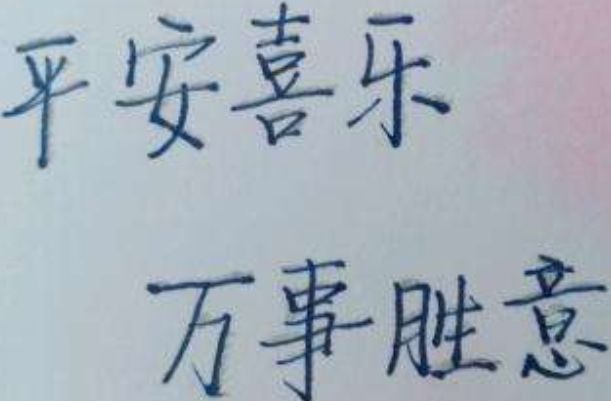 平安喜乐
万事胜意